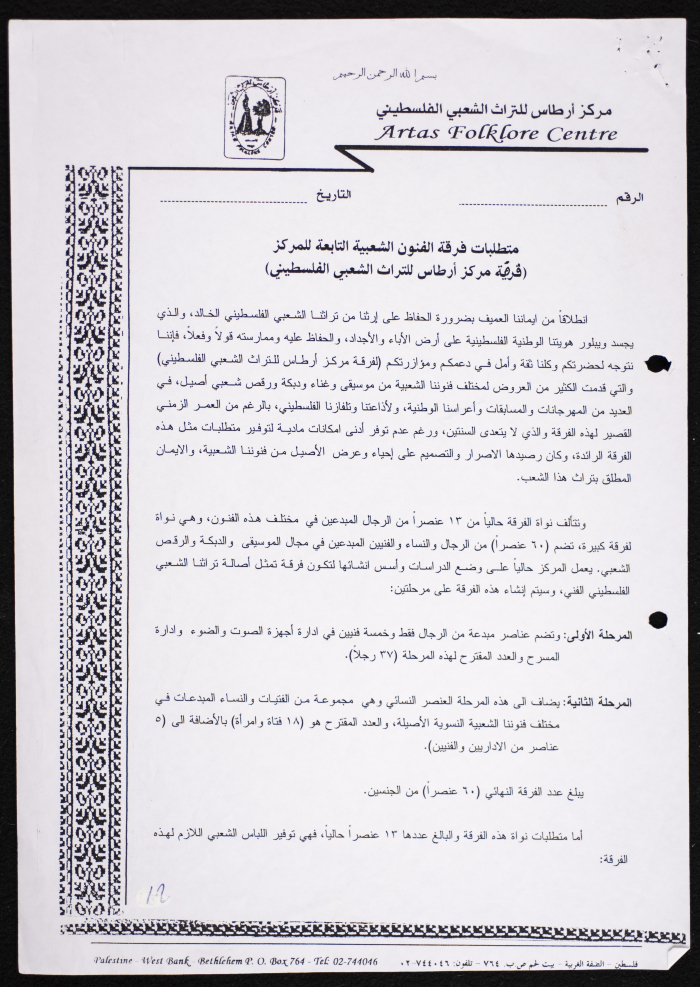 بسم الله الرحمن الرحيم
مركز أرطاس للتراث الشعبي الفلسطيني
Artas Folklore Centre
ARTAS FOLKLORE CENTER
الرقم
التاريخ
متطلبات فرقة الفنون الشعبية التابعة للمركز
(فرقة مركز أرطاس للتراث الشعبي الفلسطيني)
انطلاقاً من ايماننا العميف بضرورة الحفاظ على إرثنا من تراثنا الشعبي الفلسطيني الخالد، والذي
يجسد ويبلور هويتنا الوطنية الفلسطينية على أرض الأباء والأجداد، والحفاظ عليه وممارسته قولاً وفعلاً، فإننا
نتوجه لحضرتكم وكلنا ثقة وأمل في دعمكم ومؤازرتكم (لفرقة مركز أرطاس للتراث الشعبي الفلسطيني)
والتي قدمت الكثير من العروض لمختلف فنوننا الشعبية من موسيقى وغناء ودبكة ورقص شعبي أصيل، في
العديد من المهرجانات والمسابقات وأعراسنا الوطنية، ولأذاعتنا وتلفازنا الفلسطيني، بالرغم من العمر الزمني
القصير لهذه الفرقة والذي لا يتعدى السنتين، ورغم عدم توفر أدنى امكانات مادية لتوفير متطلبات مثل هذه
الفرقة الرائدة، وكان رصيدها الاصرار والتصميم على إحياء وعرض الأصيل من فنوننا الشعبية، والايمان
المطلق بتراث هذا الشعب.
وتتألف نواة الفرقة حالياً من ١٣ عنصراً من الرجال المبدعين في مختلف هذه الفنون، وهي نواة
لفرقة كبيرة، تضم (٦٠ عنصراً) من الرجال والنساء والفنيين المبدعين في مجال الموسيقى والدبكة والرقص
الشعبي. يعمل المركز حالياً على وضع الدراسات وأسس انشائها لتكون فرقة تمثل أصالة تراثنا الشعبي
الفلسطيني الفني، وسيتم إنشاء هذه الفرقة على مرحلتين:
المرحلة الأولى: وتضم عناصر مبدعة من الرجال فقط وخمسة فنيين في ادارة أجهزة الصوت والضوء وادارة
المسرح والعدد المقترح لهذه المرحلة (٣٧ رجلاً).
المرحلة الثانية: يضاف الى هذه المرحلة العنصر النسائي وهي مجموعة من الفتيات والنساء المبدعات في
مختلف فنوننا الشعبية النسوية الأصيلة، والعدد المقترح هو (١٨ فتاة وامرأة) بالأضافة الى (٥
عناصر من الاداريين والفنيين).
يبلغ عدد الفرقة النهائي (٦٠ عنصراً) من الجنسين.
أما متطلبات نواة هذه الفرقة والبالغ عددها ١٣ عنصراً حالياً، فهي توفير اللباس الشعبي اللازم لهذه
الفرقة:
Palestine - West Bank - Bethlehem P. O. Box 764 - Tel: 02-744046
فلسطين - الضفة الغربية - بيت لحم ص ب. ٧٦٤ - تلفون: ٧٤٤٠٤٦-٠٢